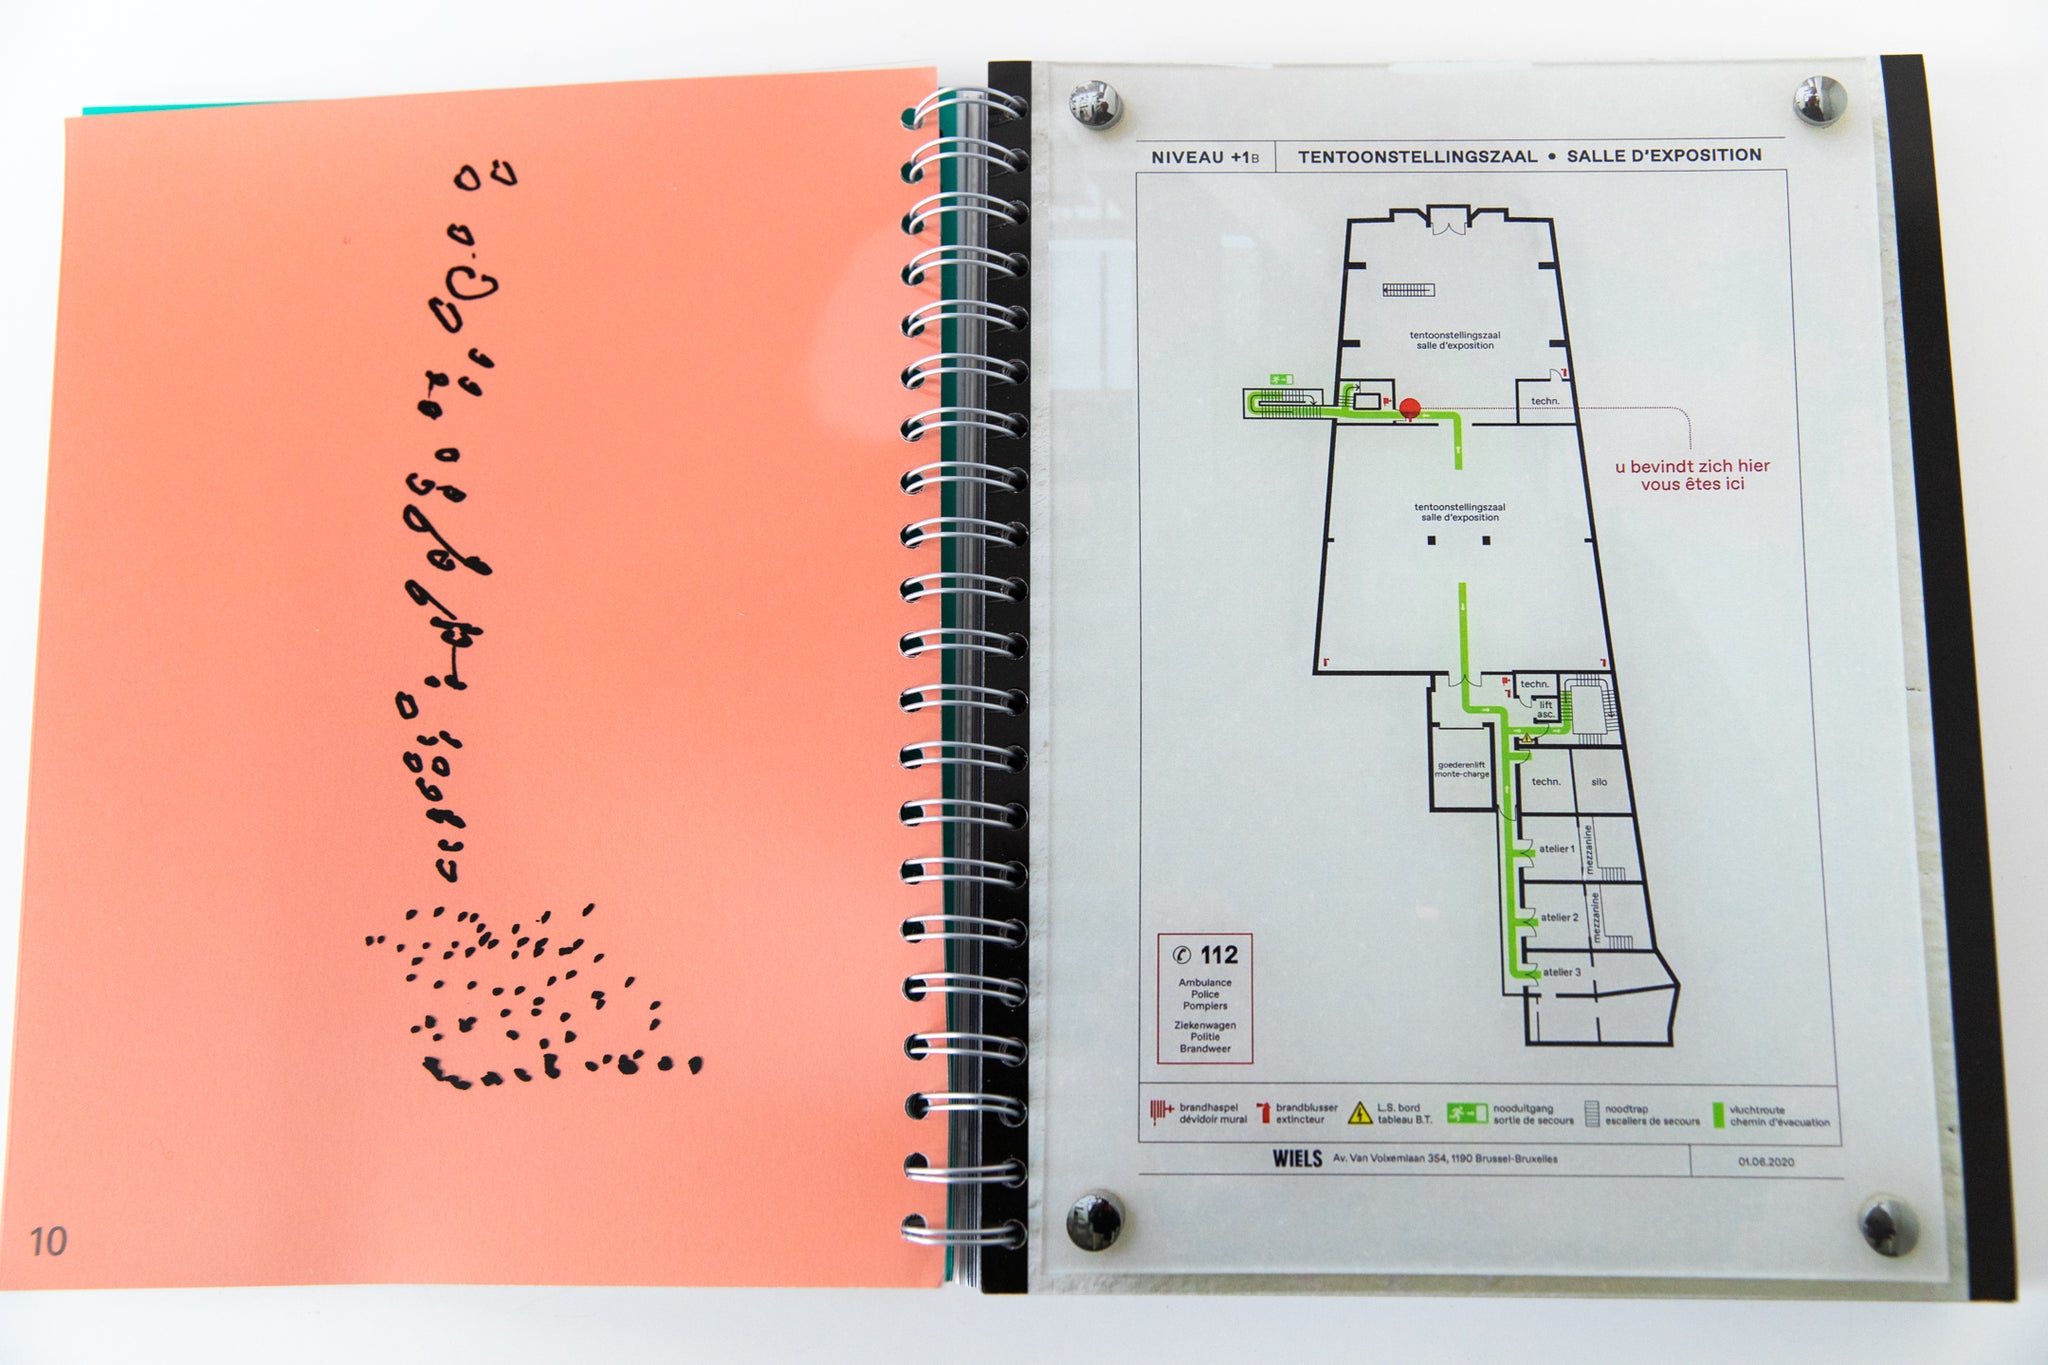 10
NIVEAU +1B
TENTOONSTELLINGSZAAL • SALLE D'EXPOSITION
tentoonstellingszaal
salle d'exposition
techn.
u bevindt zich hier
vous êtes ici
tentoonstellingszaal
salle d'exposition
techn.
lift
asc.
goederenlift
monte-charge
techn.
silo
atelier 1
mezzanine
atelier 2
mezzanine
atelier 3
✆ 112
Ambulance
Police
Pompiers
Ziekenwagen
Politie
Brandweer
brandhaspel
dévidoir mural
brandblusser
extincteur
L.S. bord
tableau B.T.
nooduitgang
sortie de secours
noodtrap
escaliers de secours
vluchtroute
chemin d'évacuation
WIELS Av. Van Volxemlaan 354, 1190 Brussel-Bruxelles
01.06.2020